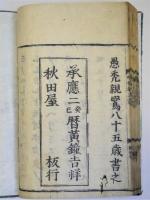 愚禿親鸞八十五歳書之
承應二癸巳曆黃鐘吉祥
秋田屋 板行